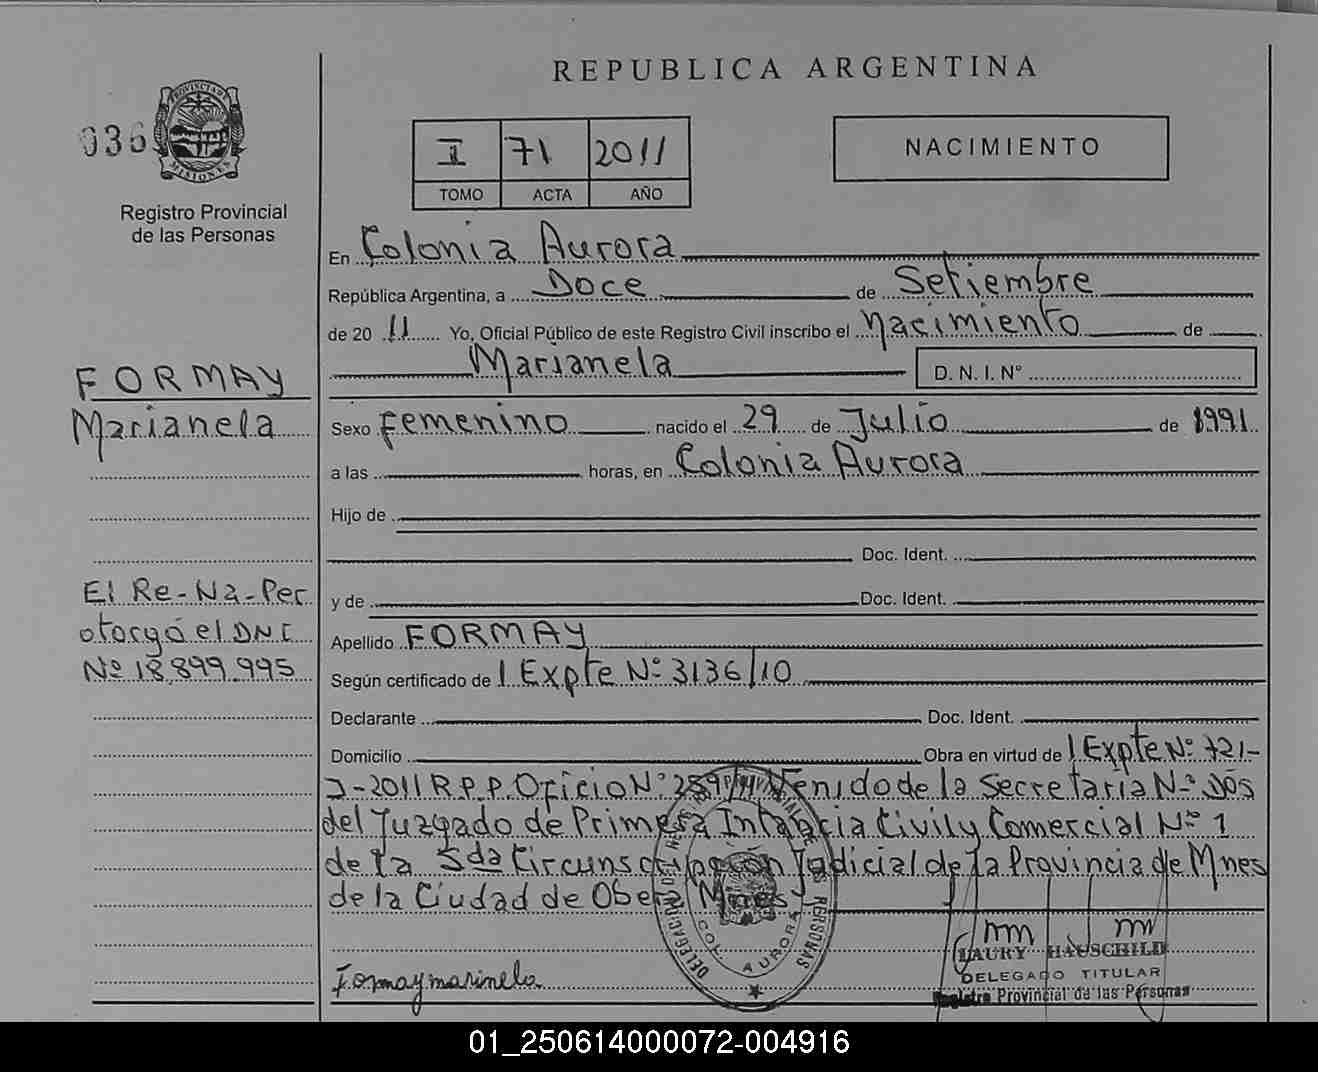 REPUBLICA ARGENTINA
036
PROVINCIA DE MISIONES
Registro Provincial
de las Personas
I 71 2011
TOMO ACTA AÑO
NACIMIENTO
En Colonia Aurora
República Argentina, a Doce de Setiembre
de 20 11 Yo, Oficial Público de este Registro Civil inscribo el Nacimiento de
Marianela D. N. I. N°
FORMAY
Marianela
Sexo Femenino nacido el 29 de Julio de 1991
a las horas, en Colonia Aurora
Hijo de
Doc. Ident.
y de Doc. Ident.
El Re-Na-Per
otorgó el DNI
Nº 18.899.995
Apellido FORMAY
Según certificado de 1 Expte Nº 3136/10
Declarante Doc. Ident.
Domicilio Obra en virtud de 1 Expte Nº 721-
J-2011 R.P.P. Oficio Nº 259/11 Venido de la Secretaria Nº Dos
del Juzgado de Primera Intancia Civil y Comercial Nº 1
de la 5da Circunscripcion Judicial de la Provincia de Mnes
de la Ciudad de Obera Mnes
DELEGACION DEL REGISTRO PROVINCIAL DE LAS PERSONAS
COL. AURORA
LAURY HAUSCHILD
DELEGADO TITULAR
Registro Provincial de las Personas
Formay marinela
01_250614000072-004916